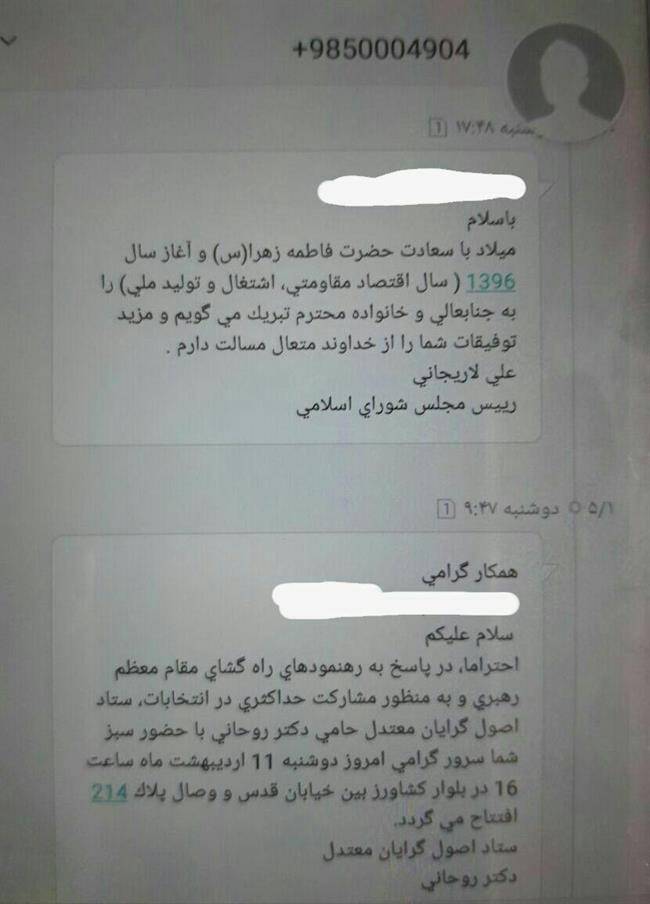 +9850004904
شنبه ۱۷:۴۸ 1
باسلام
ميلاد با سعادت حضرت فاطمه زهرا(س) و آغاز سال
1396 ( سال اقتصاد مقاومتي، اشتغال و توليد ملي) را
به جنابعالي و خانواده محترم تبريك مي گويم و مزيد
توفيقات شما را از خداوند متعال مسالت دارم .
علي لاريجاني
رييس مجلس شوراي اسلامي
۵/۱ دوشنبه ۹:۴۷ 1
همكار گرامي
سلام عليكم
احتراما، در پاسخ به رهنمودهاي راه گشاي مقام معظم
رهبري و به منظور مشاركت حداكثري در انتخابات، ستاد
اصول گرايان معتدل حامي دكتر روحاني با حضور سبز
شما سرور گرامي امروز دوشنبه 11 ارديبهشت ماه ساعت
16 در بلوار كشاورز بين خيابان قدس و وصال پلاك 214
افتتاح مي گردد.
ستاد اصول گرايان معتدل
دكتر روحاني